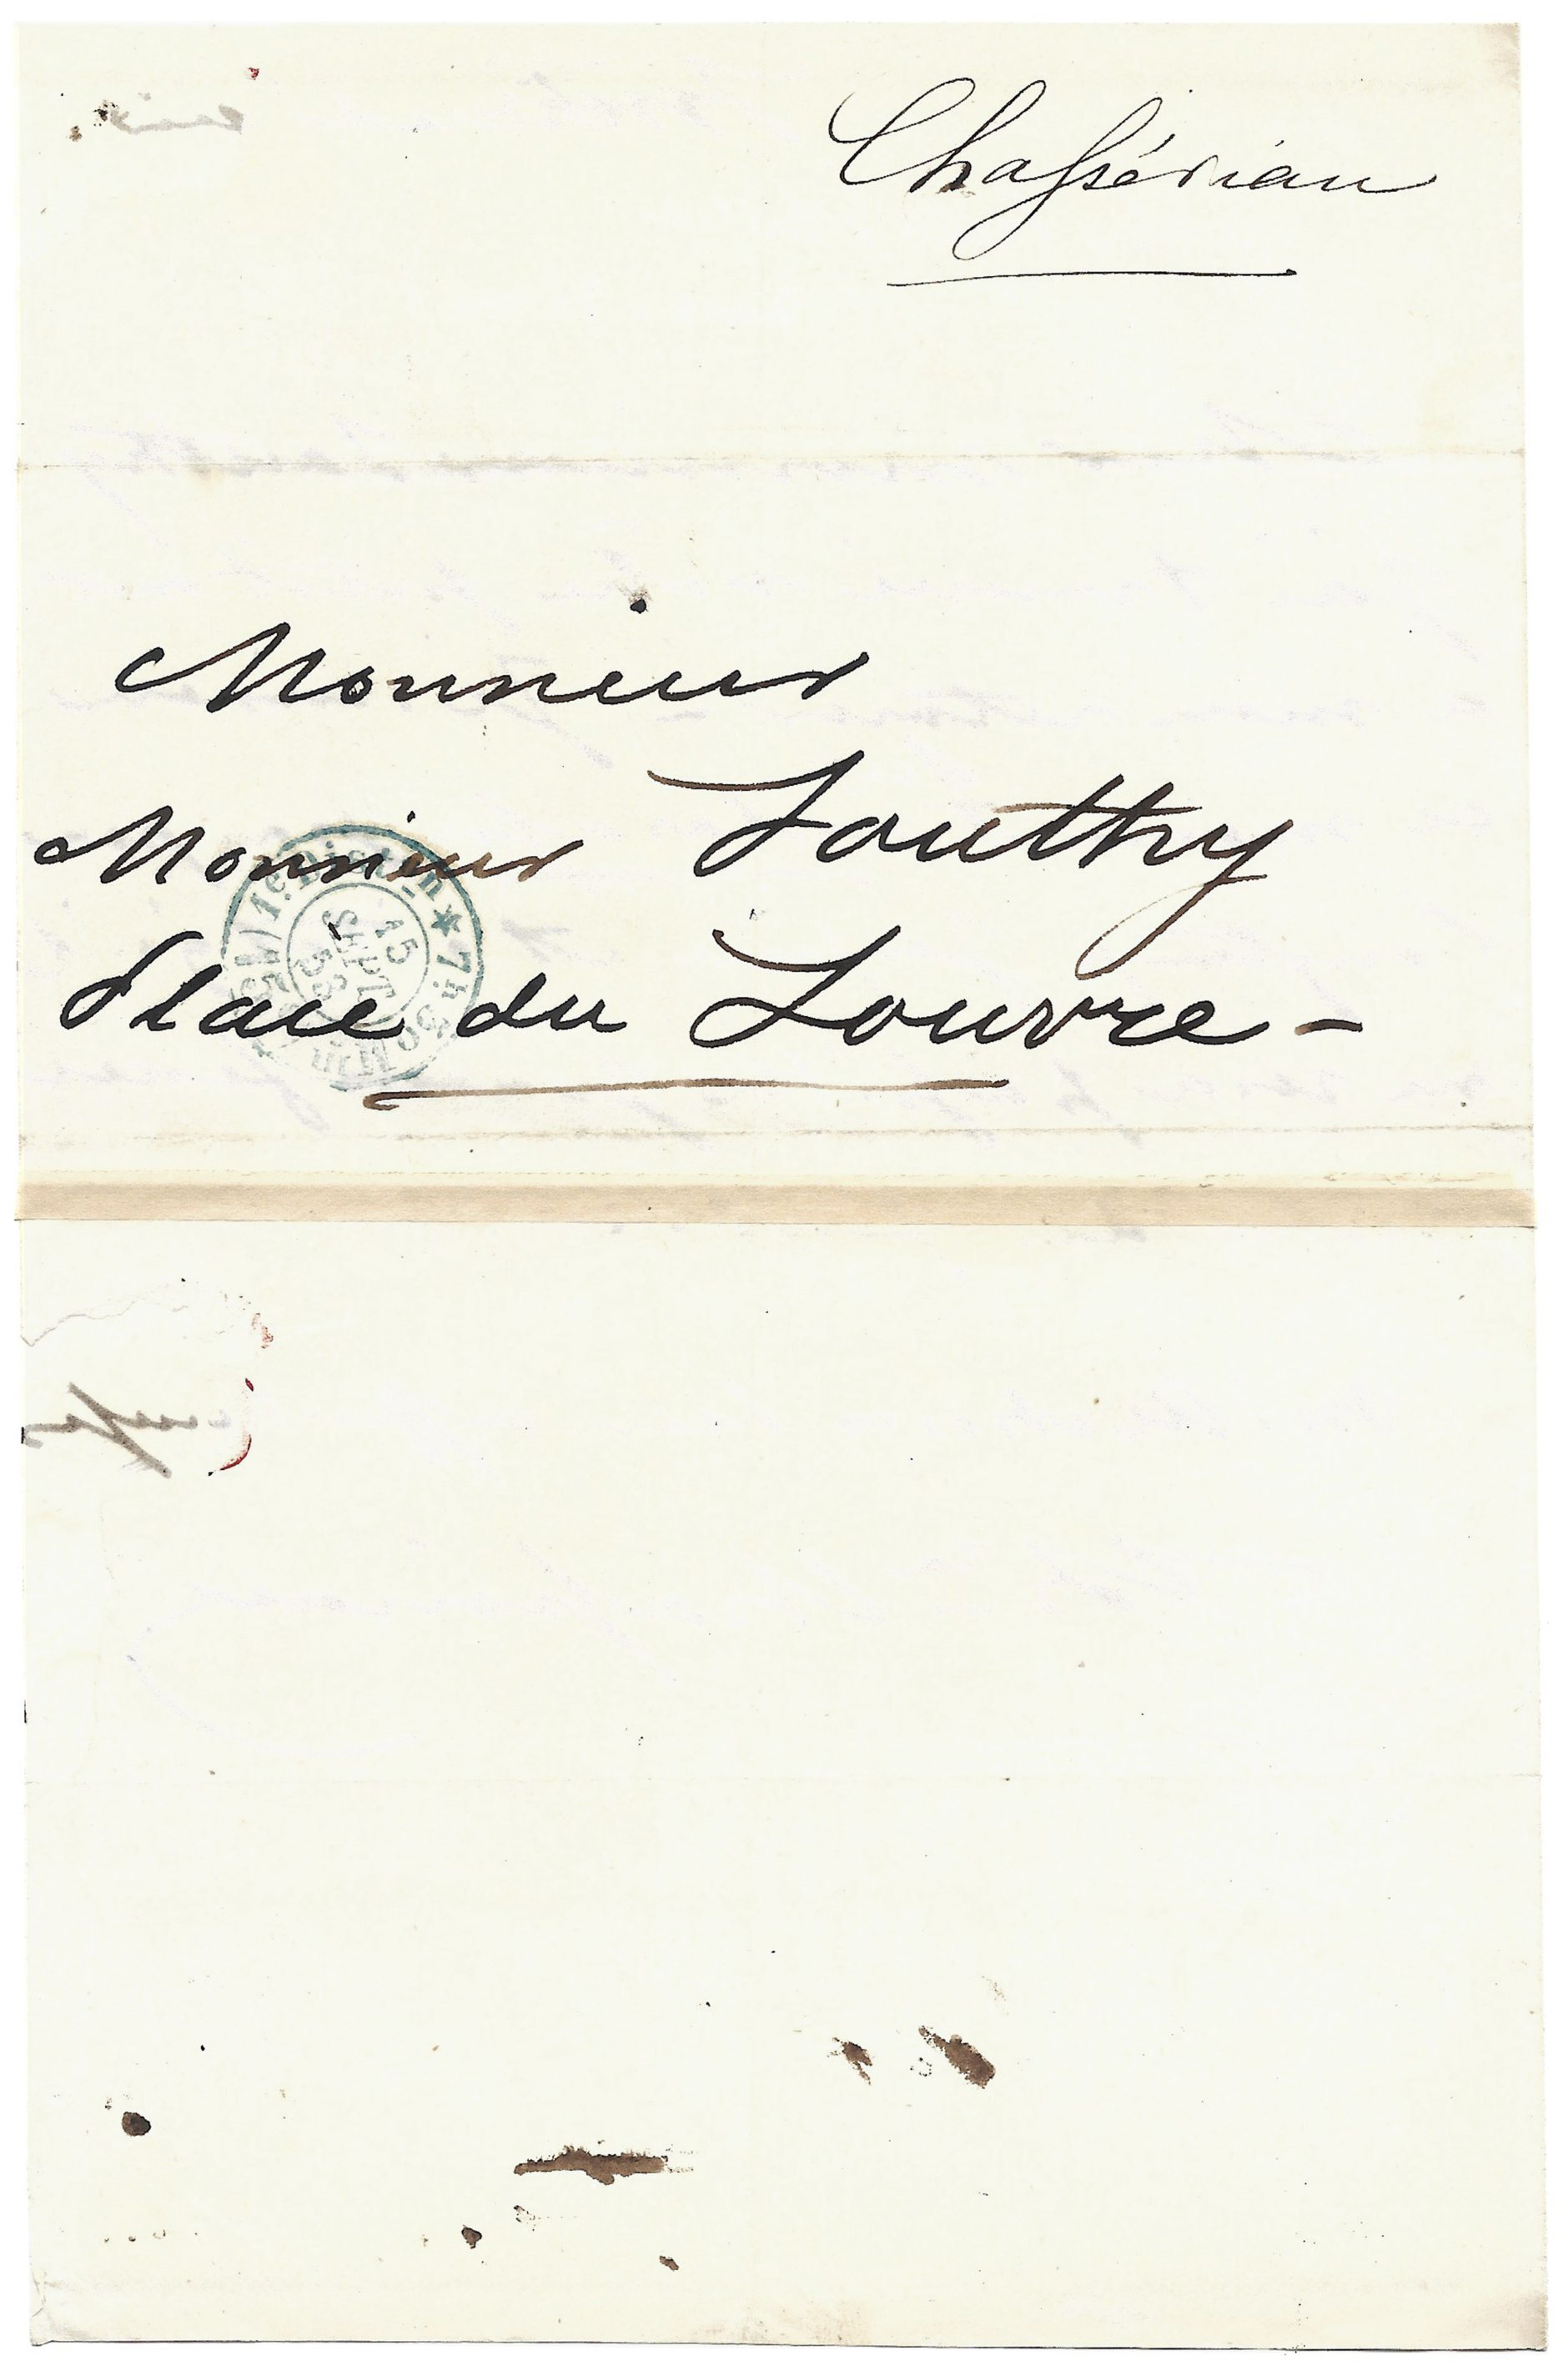 Chassériau
Monsieur
Monsieur Jouthy
Place du Louvre -
1e Distion
15
SEPT
53